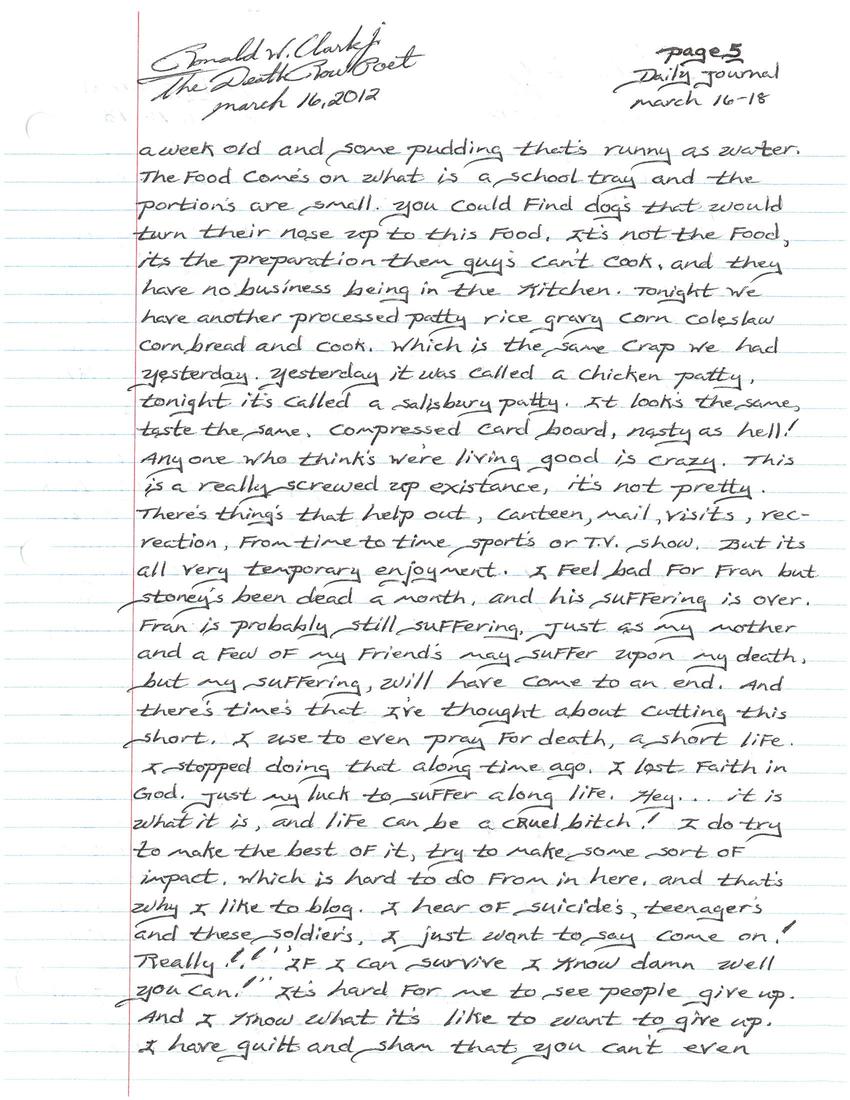 Ronald W. Clark Jr
The Death Row Poet
march 16, 2012
page 5
Daily Journal
march 16-18
a week old and some pudding that's runny as water.
The Food Come's on what is a school tray and the
portion's are small. you could Find dog's that would
turn their nose up to this Food. It's not the Food,
its the preparation them guy's can't cook, and they
have no business being in the Kitchen. Tonight we
have another processed patty rice gravy corn coleslaw
corn bread and cook. Which is the same crap we had
yesterday. yesterday it was called a chicken patty,
tonight it's called a salisbury patty. It look's the same,
taste the same. Compressed card board, nasty as hell!
Any one who think's we're living good is crazy. This
is a really screwed up existance, it's not pretty.
There's thing's that help out, canteen, mail, visits, rec-
reation, From time to time sport's or T.V. show. But its
all very temporary enjoyment. I Feel bad For Fran but
stoney's been dead a month, and his suFFering is over.
Fran is probably still suFFering. Just as my mother
and a Few oF my Friend's may suFFer upon my death,
but my suFFering, will have come to an end. And
there's time's that I've thought about cutting this
short. I use to even pray For death, a short liFe.
I stopped doing that along time ago. I lost Faith in
God. Just my luck to suFFer along liFe. Hey... it is
what it is, and liFe can be a cruel bitch! I do try
to make the best oF it, try to make some sort oF
impact. which is hard to do From in here. and that's
why I like to blog. I hear oF suicide's, teenager's
and these soldier's, I just want to say come on!
Really!! "IF I can survive I Know damn well
you can!" It's hard For me to see people give up.
And I Know what it's like to want to give up.
I have guilt and sham that you can't even